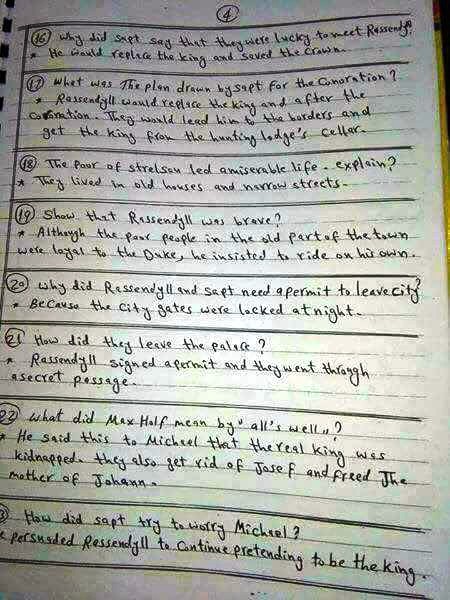 4
16 why did sapt say that they were lucky to meet Rassendyll?
* He would replace the king and saved the crown.
17 what was The plan drawn by sapt for the Conoration?
* Rassendyll would replace the king and after the
Coronation. They would lead him to the borders and
get the king from the hunting lodge's cellar.
18 The poor of strelsou led a miserable life. explain?
* They lived in old houses and narrow streets.
19 Show that Rassendyll was brave?
* Although the poor people in the old part of the town
were loyal to the Duke, he insisted to ride on his own.
20 why did Rassendyll and sapt need a permit to leave city?
* Because the city gates were locked at night.
21 How did they leave the palace?
* Rassendyll signed a permit and they went through
a secret passage.
22 what did Max Holf mean by "all's well"?
* He said this to Michael that the real king was
kidnapped. they also get rid of Josef and freed The
mother of Johann.
3 How did sapt try to worry Michael?
e persuaded Rassendyll to continue pretending to be the king.